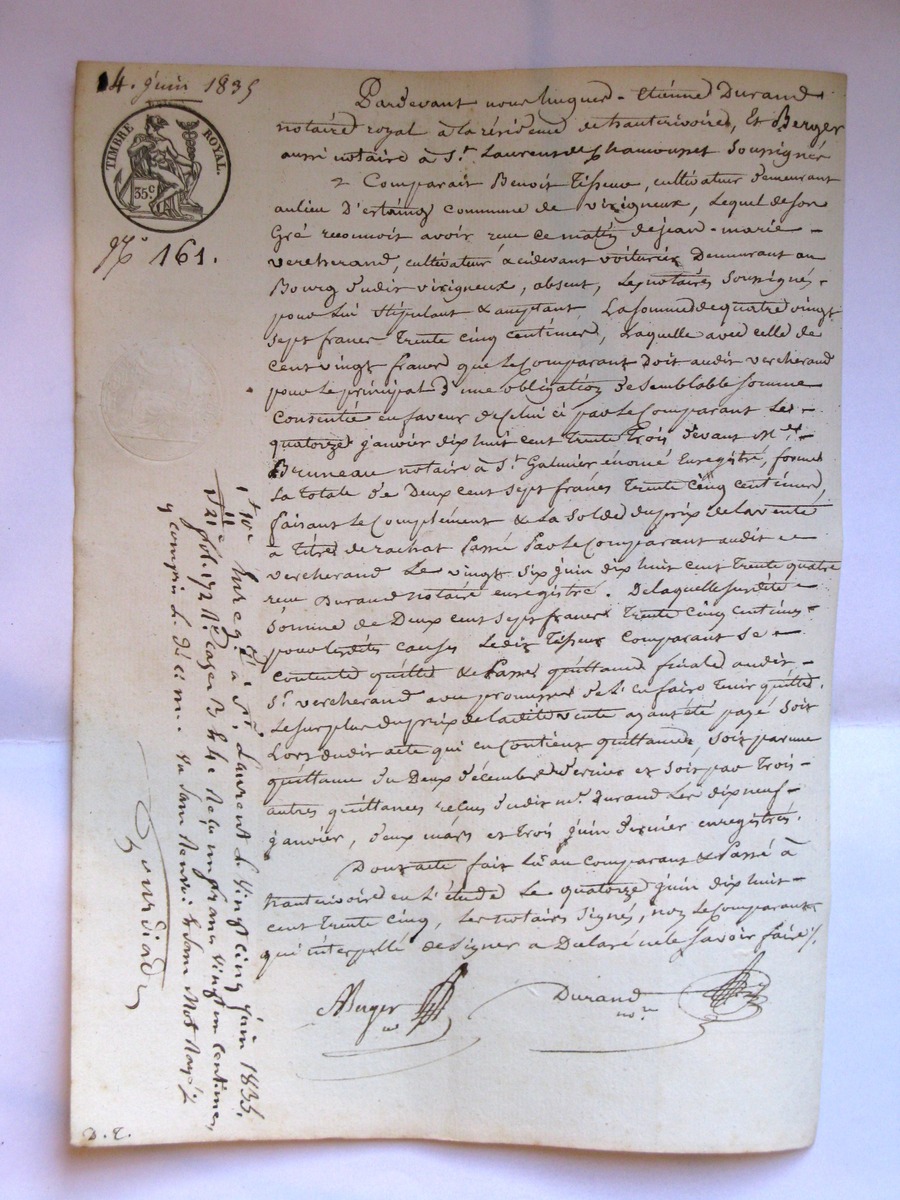 14. juin 1835
TIMBRE ROYAL.
35c
No 161.
Pardevant nous hugues - Etienne Durand
notaire royal à la résidence de hauterivoire, Et Berger
aussi notaire à St. Laurent de Chamousset soussignés
Comparait Benoit Tisseur, cultivateur demeurant
au lieu D'estaing commune de virigneux, Lequel de son
Gré reconnoit avoir reçu ce matin de jean-marie
vercherand, cultivateur & cidevant voiturier Demeurant au
Bourg dudit virigneux, absent, Les notaires soussignés
pour Lui stipulant & acceptant, La somme de quatre vingt
sept francs trente cinq centimes, Laquelle avec celle de
cent vingt francs que le Comparant Doit audit vercherand
pour le principal d'une obligation de semblable somme
Consentie en faveur de Celui ci par le Comparant Le
quatorze janvier dix huit cent trente trois devant Me
Bruneau notaire à St. Galmier énoncé Enregistré, forme
La totale de Deux cent sept francs Trente Cinq centimes,
faisant le Complément & La Solde du prix de la vente
à titre de rachat Passé Par le Comparant audit
vercherand Le vingt six juin dix huit cent trente quatre
reçu Durand notaire enregistré. De laquelle susdite
somme de Deux cent sept francs Trente Cinq centimes
pour lesdites causes Ledit Tisseur Comparant se
contente quitte & Passe quittance finale audit
Sr. vercherand avec promesse de L'en faire tenir quitte.
Le surplus du prix de la dite vente ayant été payé soit
Lors dudit acte qui en Contient quittance, soit par une
quittance du Deux décembre dernier et soit par Trois
autres quittances reçues dudit me. Durand Les dix neuf
janvier, deux mars et trois juin dernier enregistrés.
Dont acte fait Lu au comparant & Passé à
hauterivoire en L'étude Le quatorze juin dix huit
cent trente cinq, Les notaires signés, non le Comparant
qui interpellé de signer a Déclaré ne le savoir faire /.
Berger
nre
Durand
nre
Enregé. à St. Laurent Le vingt cinq juin 1835,
fol. 172 Ro. Case B et he reçu un franc vingt un centimes
y compris Le décime.
D. T.